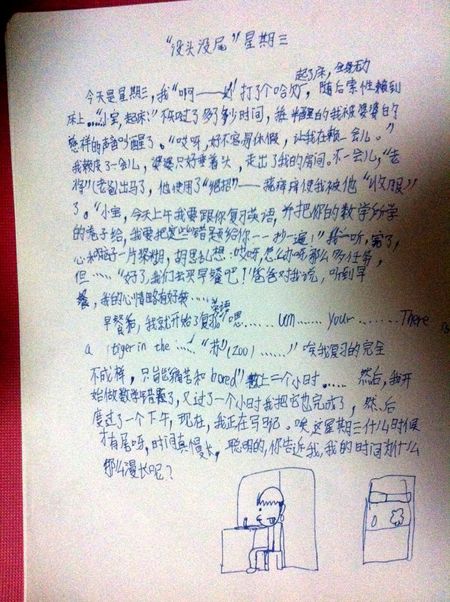 “没头没尾”星期三
起了床,全身无力
今天是星期三,我“啊——”打了个哈欠,随后索性躺到
床上。“小宝,起床!”不知过了多少时间,半醒的我被婆婆的
慈祥的声音叫醒了。“哎呀,好不容易休假,让我在赖一会儿。”
我赖皮了一会儿,婆婆只好垂着头,走出了我的房间。不一会儿,“老
将”(老爸)出马了,他使用了“绝招”——挠痒痒使我被他“收服”
了。“小宝,今天上午我要跟你复习英语,并把你的数学所学
的卷子给,我要把这些错题给你一一抄一遍!”我一听,完了,
心和脑子一片,胡思乱想:哎呀,怎么办呀那么多任务,
但……“好了,我们去买早餐吧!”爸爸对我说,听到早
餐,我的心情略有好转……
早餐,我就开始了复习英语“嗯……um……your……There
a tiger in the……”“苏”(zoo)……”唉我复习的完全
不成样,只能痛苦和“bored”上二个小时……然后,我开
始做数学错题了,又过了一个小时我把它也完成了,然后
度过了一个下午,现在,我正在写日记。唉这星期三什么时候
才有尾呀,时间真漫长,聪明的,你告诉我,我的时间为什么
那么漫长呢?